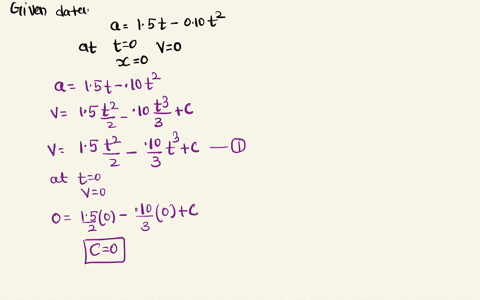 Given data:
a = 1.5t - 0.10t²
at t=0 V=0
x=0
a = 1.5t - .10t²
V = 1.5 t²/2 - .10 t³/3 + C
V = 1.5 t²/2 - .10/3 t³ + C — ①
at t=0
V=0
0 = 1.5/2 (0) - .10/3 (0) + C
C=0